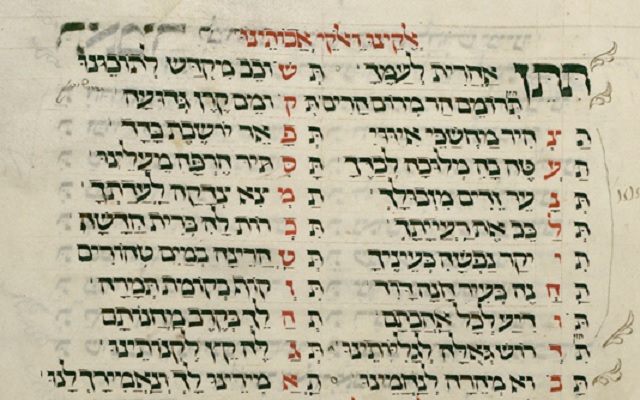 אלהינו ואלהי אבותינו
תתן אחרית לעמך ת ש ובב מקדש
תרומם הר מרום הרים ת ק ומם קרן גרועה
ת צ היר מחשכי אישון ת פ אר יושבת בדד
ת ע טה מלוכה ת ס יר חרפה מעלינו
ת נ ער זרים מזבולך ת מ צא צדקה
ת ל בב את רעייתך ת כ רות לה ברית חדשה
ת י יקר נפשה בעיניך ת ט הרינה במים טהורים
ת ח נה בעיר חנה דוד ת ז בקומת תמרה
ת ו ודע לכל אהבתם ת ה לך בקרב מחנותם
ת ד רוש גאולה לגליותינו ת ג לה קץ לקנותינו
ת ב וא מהרה לנחמינו ת א מירינו לך ונאמירך לנו